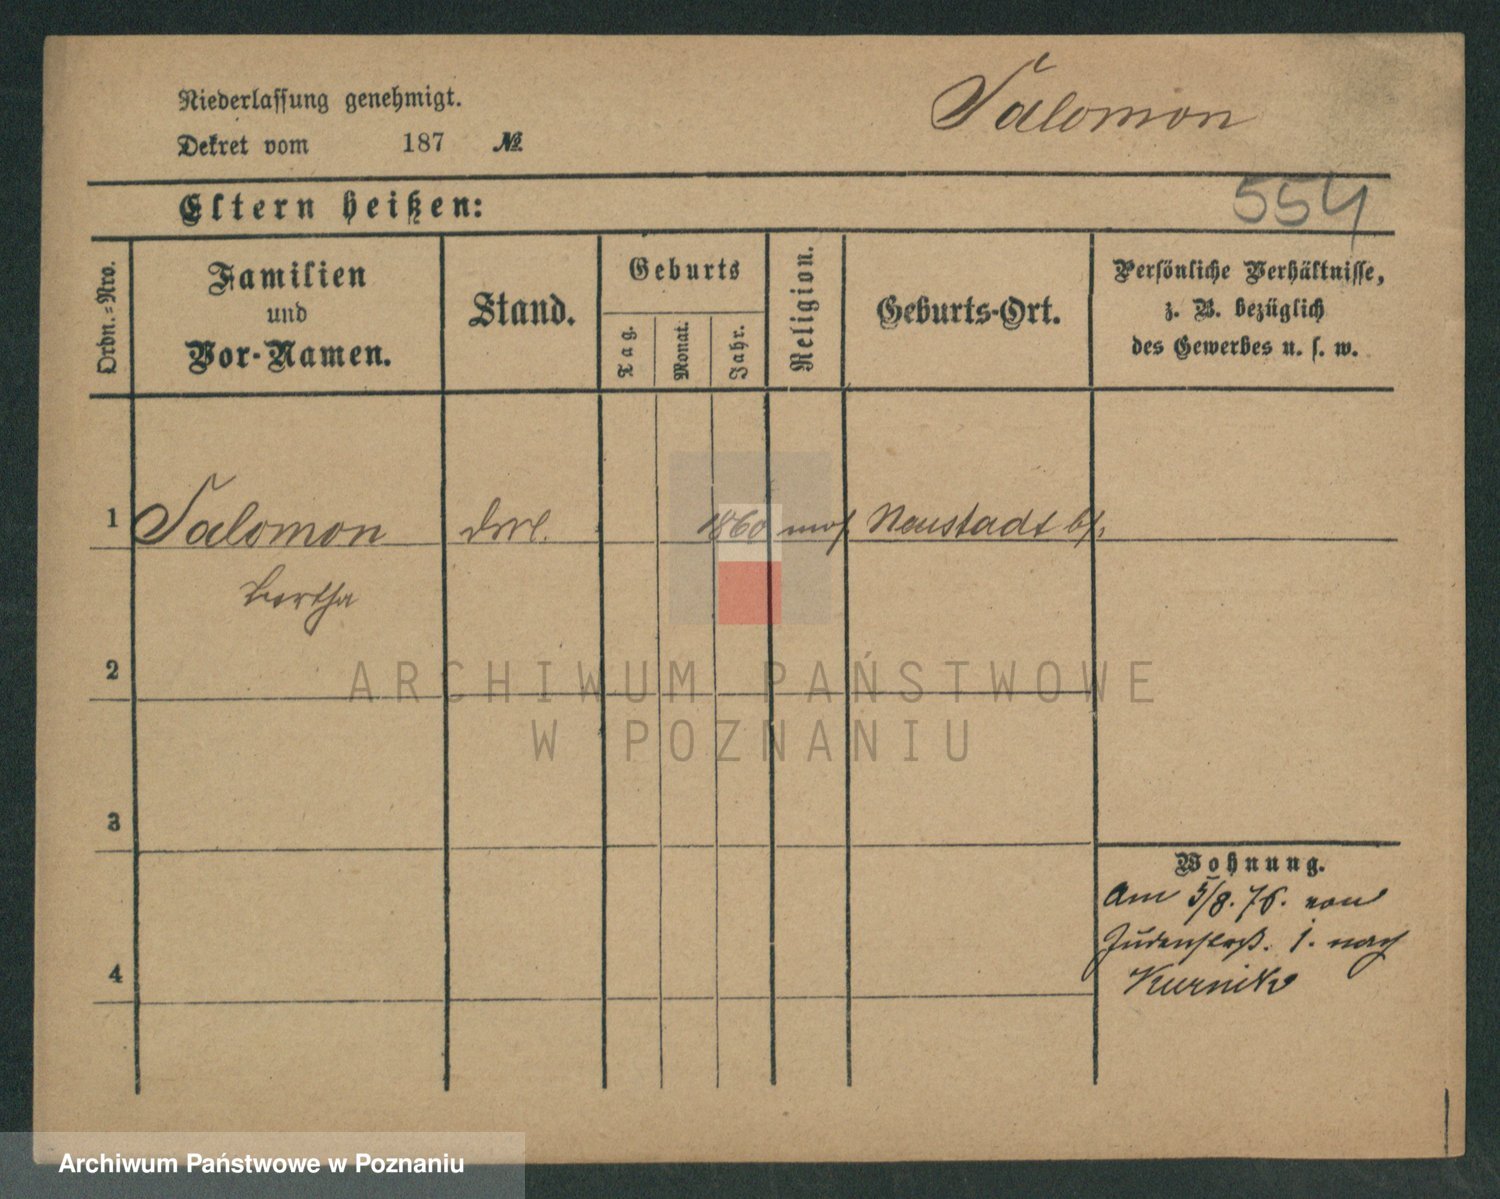 Niederlassung genehmigt.
Salomon
Dekret vom 187 №
Eltern heißen:
554
Ordn.-Nro.
Familien
und
Vor-Namen.
Stand.
Geburts
Tag.
Monat.
Jahr.
Religion.
Geburts-Ort.
Persönliche Verhältnisse,
z. B. bezüglich
des Gewerbes u. s. w.
1 Salomon 1860 mos. Neustadt b/.
Bertha
2
ARCHIWUM PAŃSTWOWE
W POZNANIU
3
Wohnung.
Am 5/8. 76. von
Judenstraß. 1. nach
4
Kurnik
Archiwum Państwowe w Poznaniu